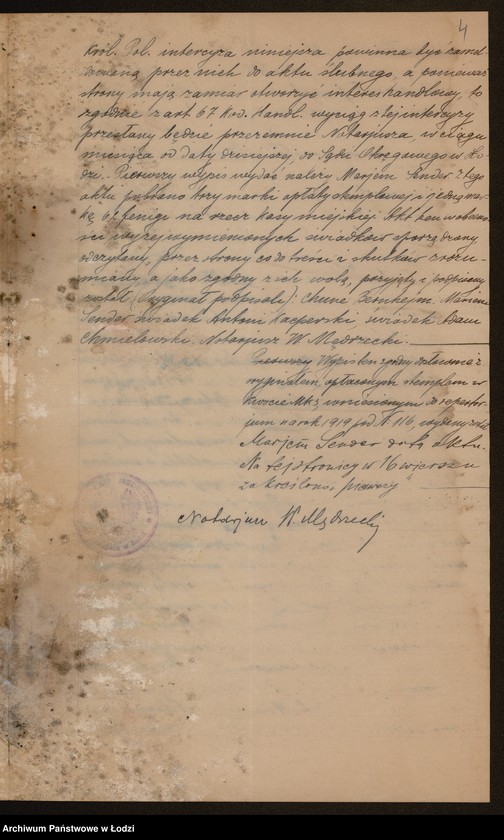 4
Król. Pol. intercyza niniejsza powinna być zamel
dowaną przez nich do aktu ślubnego, a ponieważ
strony mają zamiar otworzyć interes handlowy, to
zgodnie z art 67 Kod. Handl. wyciąg z tej intercyzy
przesłany będzie przezemnie Notarjusza, w ciągu
miesiąca od daty dzisiejszej, do Sądu Okręgowego w Ło
dzi. Pierwszy wypis wydać należy Marjem Sender z tego
aktu pobrano trzy marki opłaty stemplowej i jedną mar
kę 62 fenigi na rzecz kasy miejskiej. Akt ten w obecno
ści wyżej wymienionych świadków sporządzony
odczytany, przez strony co do treści i skutków zrozu-
miany a jako zgodny z ich wolą, przyjęty i podpisany
został (Oryginał podpisali): Chune Bernhejm. Mariem
Sender świadek Antoni Kacperski, świadek Adam
Chmielewski. Notarjusz W. Mędrzecki.
Pierwszy Wypis ten zgodny dosłownie z
oryginałem, opłaconym stemplem w
kwocie Mk 3, wniesionym do repertor-
jum na rok 1919 pod N 116, wydany został
Marjem Sender do tą aktu.
Na tej stronicy w 16 wierszu
zakreślono "pierwszy"
Notarjusz W. Mędrzecki
Archiwum Państwowe w Łodzi